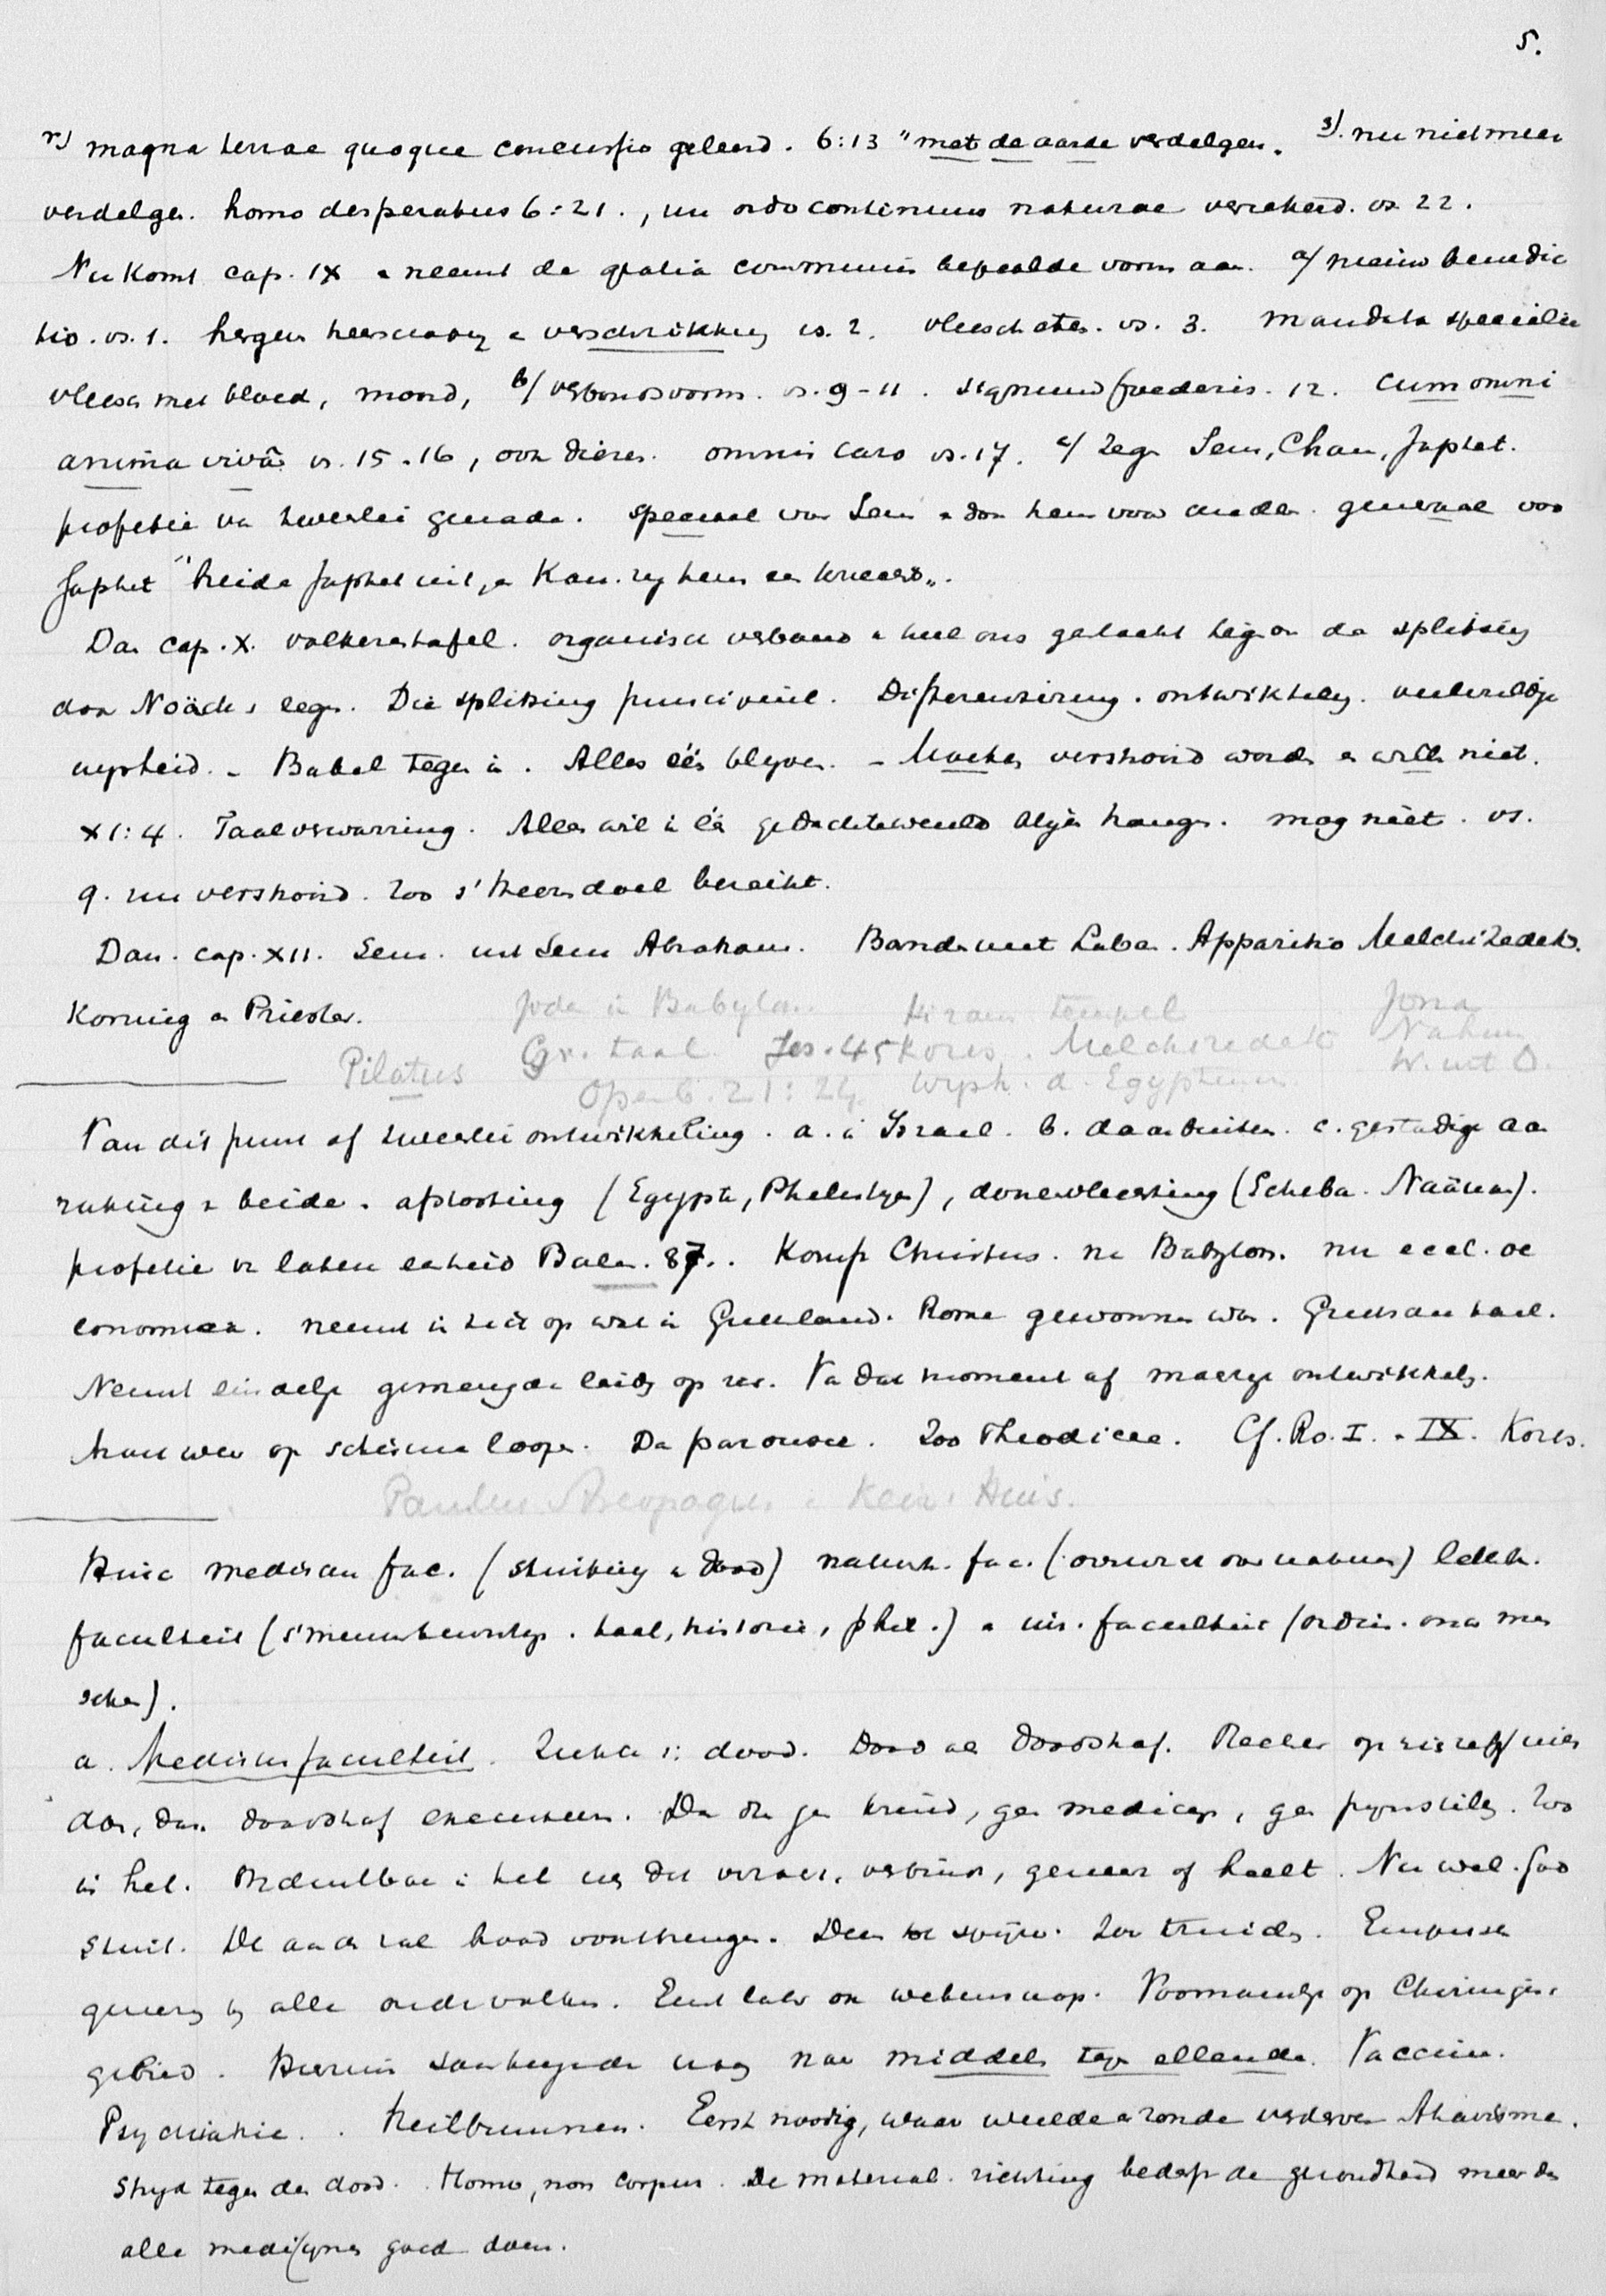 5.
r) magna terrae quoque concussio geleerd. 6:13 "met de aarde verdelgen. s). nu niet meer
verdelgen. homo desperatus 6:21., nu ordo continuus naturae verzekerd. vs 22.
Nu komt cap. IX & neemt de gratia communis bepaalde vorm aan. a/ nieuw benedic
tio. vs. 1. & verschrikking vs. 2. vleesch eten. vs. 3. Mandata specialia
vleesch met bloed, moord, b/ verbondsvorm. vs. 9-11. signum foederis. 12. cum omni
anima vivâ vs. 15-16, ook dieren. omnis caro vs. 17. c/ Zegen Sem, Cham, Japhet.
profetie van tweeërlei genade. speciaal voor Sem & door hem voor anderen. generaal voor
Japhet "breide Japhet uit, en Kan. zij hem een knecht".
Dan cap. X. volkerentafel. organisch verband & heel ons geslacht tegen de splitsing
door Noächs zegen. Die splitsing principieel. Differentiëring. ontwikkeling.
- Babel tegen in. Alles één blijven. - Moeten verstrooid worden & willen niet.
XI:4. Taalverwarring. Alles wil in één gedachtewereld blijven hangen. mag niet. vs.
9. nu verstrooid. Zoo s'Heeren doel bereikt.
Dan. cap. XII. Sem. uit Sem Abraham. Band met Laban. Apparitio Melchizedek.
Koning en Priester. Joden in Babylon. Hiram tempel Jona
Pilatus Gr. taal. Jes. 45 Kores. Melchizedek Nahum
Openb. 21:24 Wijsh. d. Egyptenaren W. uit O.
Van dit punt af tweeërlei ontwikkeling. a. in Israel. b. daarbuiten. c. gestadige aan
raking & beide. afstooting (Egypte, Philistijnen), dooreenvlechting (Scheba. Naäman).
profetie van latere eenheid Psalm. 87.. Komst Christus. na Babylon. nu eccl. oe
conomica. neemt in zich op wat in Griekenland. Rome gewonnen was. Grieksche taal.
Neemt eindelijk gemengde leiding op zich. Van dat moment af machtige ontwikkeling.
weer op schisma loopen. De parousie. Zoo Theodicee. Cf. Ro. I. - IX. Kores.
Paulus Areopagus & Keiz. Huis.
Hinc medische fac. (stuiting & dood) natuurk. fac. (overwicht over natuur) letterk.
faculteit (s'menschen bewustzijn. taal, historie, phil.) & iur. faculteit (ordin. onder men
schen).
a. Medische faculteit. Ziekte is dood. Dood als doodstraf. Rechter op
dan, dan doodstraf executeeren. Dan ook geen kruid, geen medicijn, geen pijnstilling. Zoo
in hel. Ondenkbaar in hel iets dat verzacht, verbindt, geneest of heelt. Nu wel. God
stuit. De aarde zal brood voortbrengen. Zoo kruiden. Empirische
genezing bij alle oude volken. Eerst later ook wetenschap. Voornamelijk op Chirurgisch
gebied. Hierin nog naar middelen tegen ellende. Vaccine.
Psychiatrie. . Heilbronnen. Eerst noodig, waar weelde & zonde verderven Atavisme.
Strijd tegen den dood. Homo, non corpus. De material. richting bederft de gezondheid meer dan
alle medicijnen goed doen.